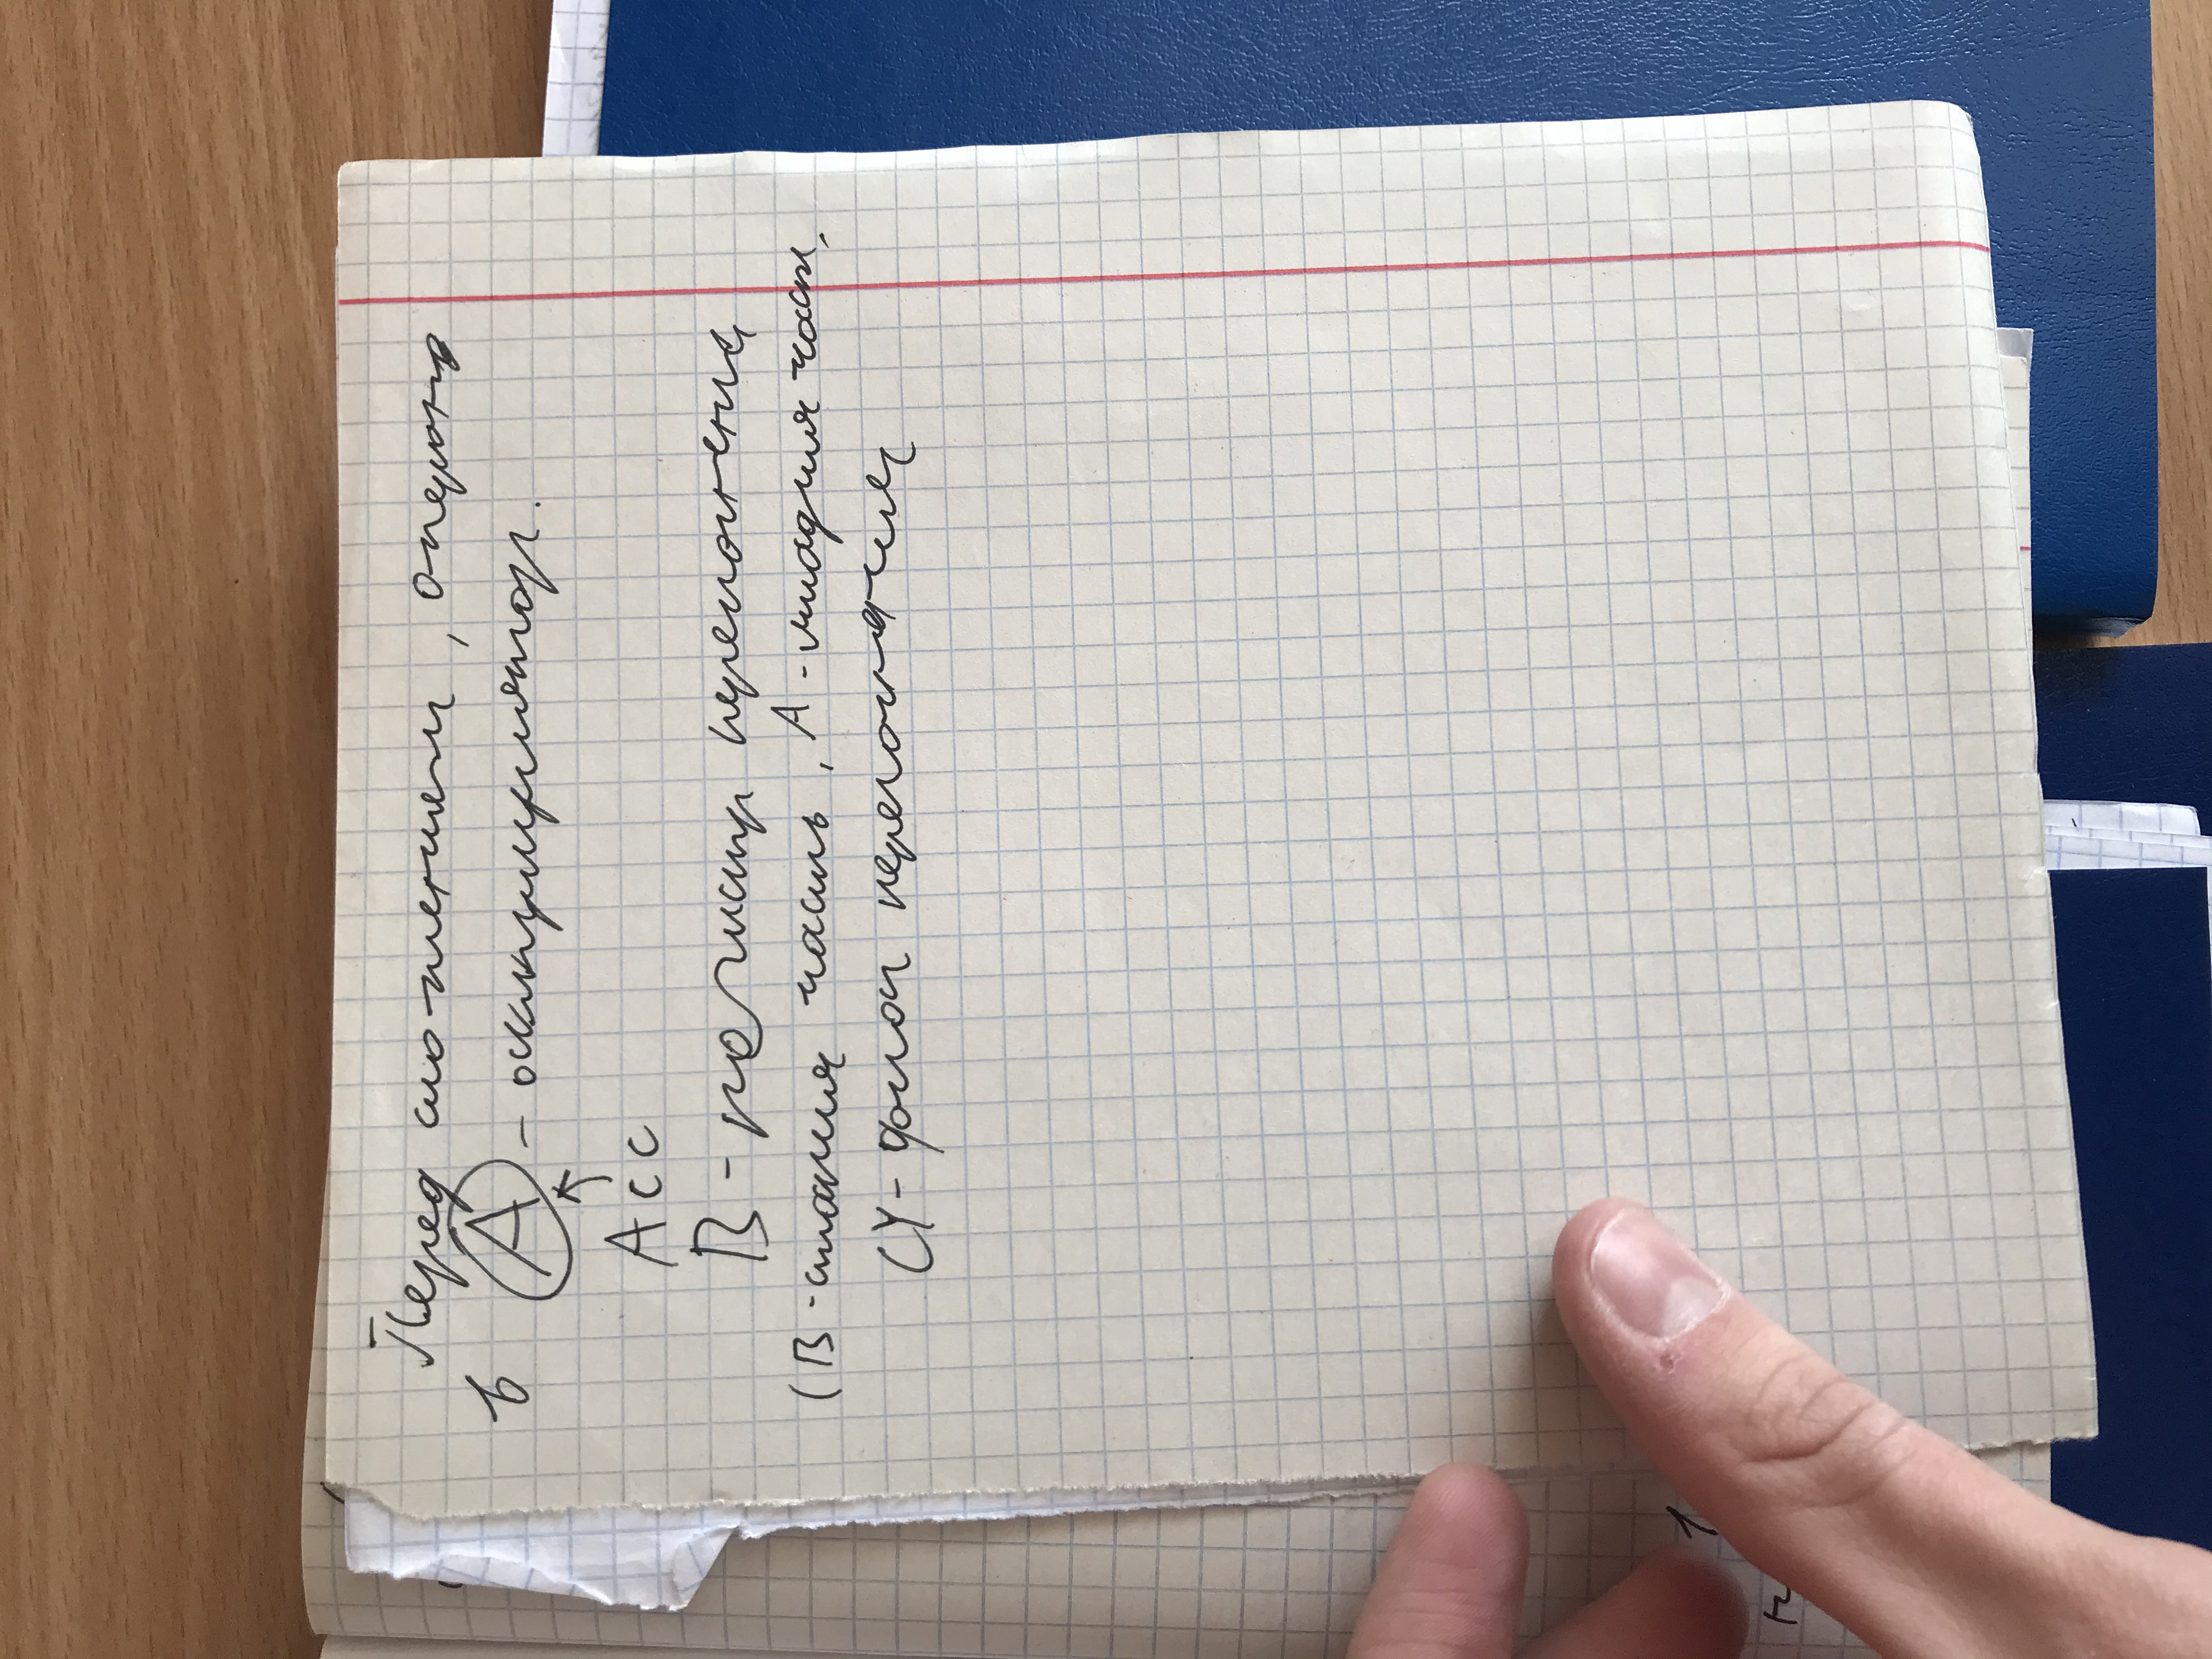 Перед сложением, операнд
в А - аккумулятор.
Acc
B - регистр переполнения
(B - старшая часть, A - младшая часть,
CY - флаг переполнения